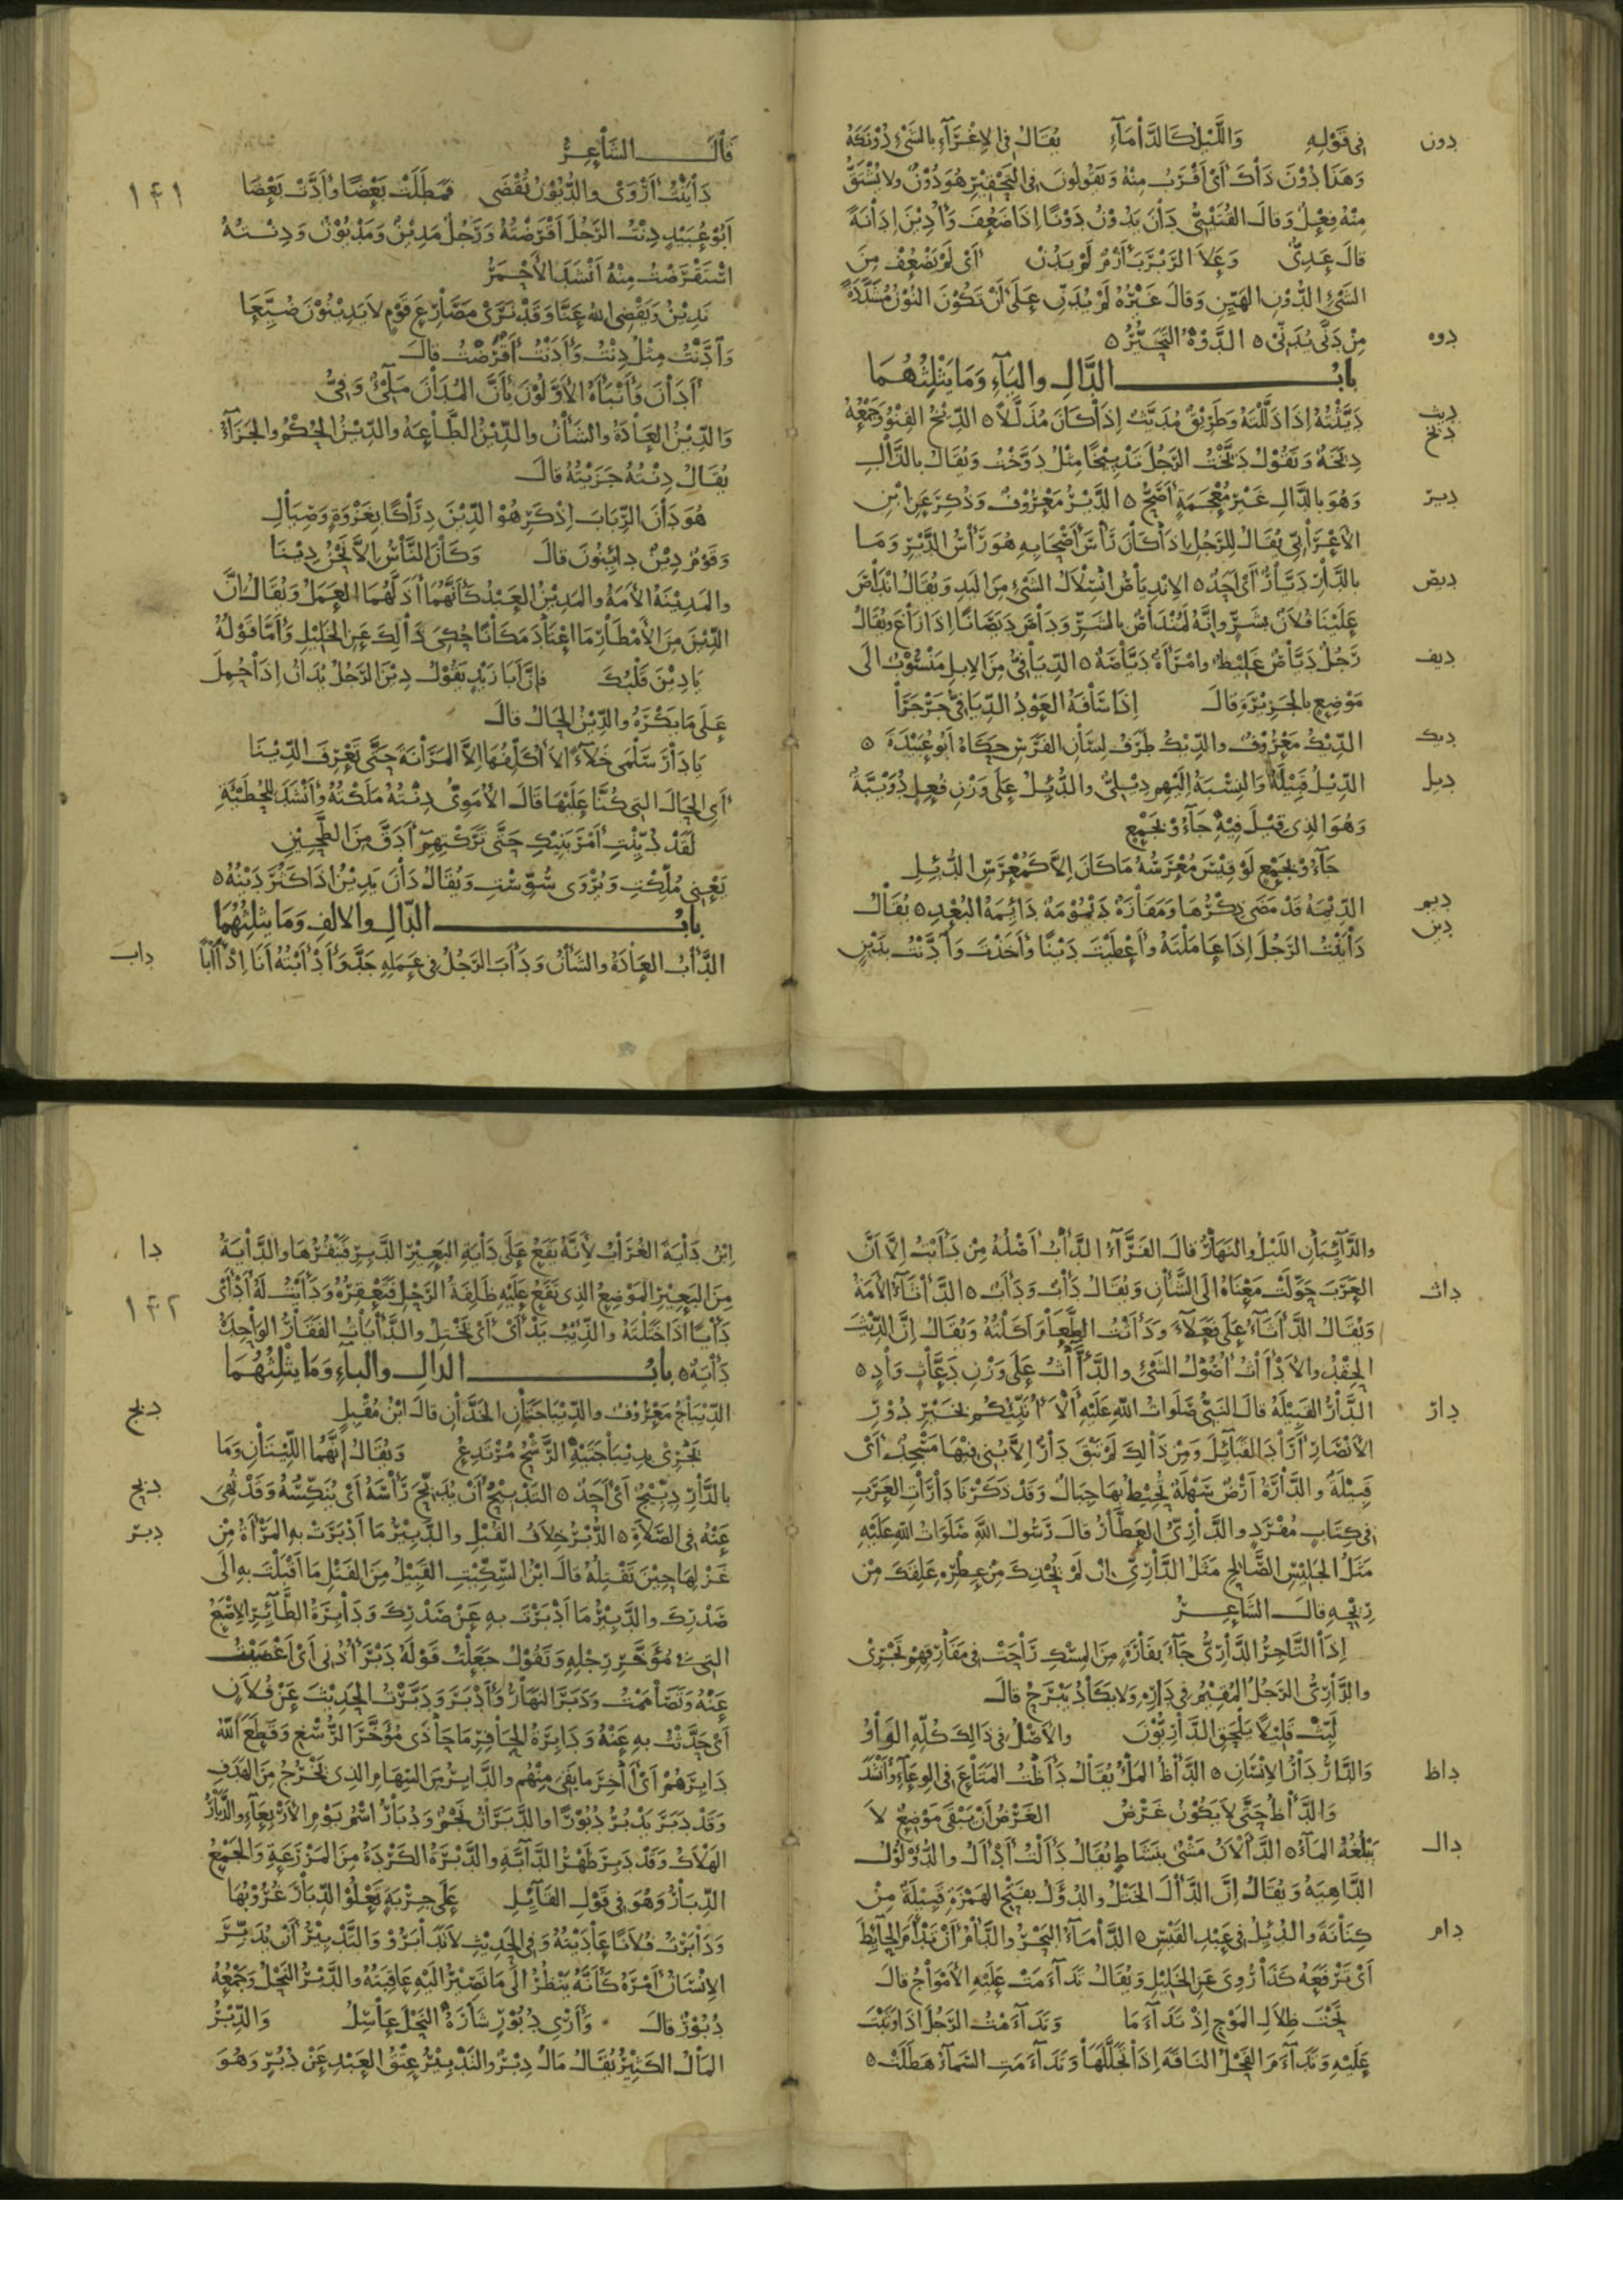 دون في قوله والليل كالدأماء يقال في الإغراء بالشيء دونكه
وهذا دون ذاك أي أقرب منه ويقولون في التحقير هو دون ولا يشتق
منه فعل وقال القتيبي دان يدون دونا إذا ضعف وأدين إدانة
قال عدي وعلا الربرب أزم لم يدن أي لم يضعف من
الشيء الدون الهين وقال غيره لم يدن على أن تكون النون مشددة
دوه من دنى يدني ٥ الدوه التحير ٥
باب الدال والياء وما يثلثهما
ديث ديثته إذا ذللته وطريق مديث إذا كان مذللا ٥ الديخ القنو وجمعه
ديخ ديخة وتقول ديخت الرجل تدييخا مثل دوخت ويقال بالذال
دير وهو بالدال غير معجمة أصح ٥ الدير معروف وذكر عن ابن
الأعرابي يقال للرجل إذا كان رأس أصحابه هو رأس الدير وما
ديص بالدار ديار أي أحد ٥ الاندياص انسلال الشيء من اليد ويقال انداص
علينا فلان بشر وإنه لمنداص بالشر وداص ديصانا إذا راغ ويقال
ديف رجل دياص غليظ وامرأة دياصة ٥ الديافي من الإبل منسوب الى
موضع بالجزيرة قال إذا سافه العود الديافي جرجرا
ديك الديك معروف والديك طرف لسان الفرس حكاه أبو عبيدة ٥
ديل الديل قبيلة والنسبة إليهم ديلي والدئل على وزن فعل دويبة
وهو الذي قيل فيه جاءو بجمع
جاءو بجمع لو قيس معرسه ما كان إلا كمعرس الدئل
ديم الديمة قد مضى ذكرها ومفازة ديمومة دائمة البعد ٥ يقال
دين داينت الرجل إذا عاملته وأعطيت دينا وأخذت وادنت بدين
قال الشاعر
١٤١ داينت أروى والديون تقضى فمطلت بعضا وأدت بعضا
أبو عبيد دنت الرجل أقرضته ورجل مدين ومديون ودنته
استقرضت منه أنشد الأحمر
ندين ويقضي الله عنا وقد نرى مصارع قوم لا يدينون ضيعا
وادنت مثل دنت وأدنت أقرضت قال
أدان وأنبأه الأولون بأن المدان ملئ وفي
والدين العادة والشأن والدين الطاعة والدين الحكم والجزاء
يقال دنته جزيته قال
هو دان الرباب إذ كرهوا الدين دراكا بغزوة وصيال
وقوم دين دائنون قال وكان الناس إلا نحن دينا
والمدينة الأمة والمدين العبد كأنهما أذلهما العمل ويقال إن
الدين من الأمطار ما اعتاد مكانا حكي ذلك عن الخليل وأما قوله
يا دين قلبك فإن أبا زيد يقول دين الرجل يدان إذا حمل
على ما يكره والدين الحال قال
يا دار سلمى خلاء لا أكلفها إلا المرانة حتى تعرف الدينا
أي الحال التي كنا عليها قال الأموي دنته ملكته وأنشد للحطيئة
لقد دينت أمر بنيك حتى تركتهم أدق من الطحين
يعني ملكت ويروى سوست ويقال دان يدين إذا كثر دينه ٥
باب الدال والالف وما يثلثهما
داب الدأب العادة والشأن ودأب الرجل في عمله جد وأدأبته أنا إدآبا
والدائبان الليل والنهار قال الفراء الدأب أصله من دأبت إلا أن
داث العرب حولت معناه الى الشأن ويقال دأب ودأب ٥ الدأثاء الأمة
ويقال الدأثاء على فعلاء ودأثت الطعام أكلته ويقال إن الدئث
الحقد والأدآث أصول الشيء والدأاث على وزن دعاث واد ٥
دار الدار القبيلة قال النبي صلوات الله عليه ألا أنبئكم بخير دور
الأنصار أراد القبائل ومن ذلك لم تبق دار إلا بني فيها مسجد أي
قبيلة والدارة أرض سهلة تحيط بها جبال وقد ذكرنا دارات العرب
في كتاب مفرد والداري العطار قال رسول الله صلوات الله عليه
مثل الجليس الصالح مثل الداري إن لم يحذك من عطره علقك من
ريحه قال الشاعر
إذا التاجر الداري جاء بفارة من المسك راحت في مفارقهم تجري
والداري الرجل المقيم في داره ولا يكاد يبرح قال
لبث قليلا يلحق الداريون والأصل في ذلك كله الواو
داظ والدار دار الإنسان ٥ الدأظ الملؤ يقال دأظت المتاع في الوعاء وأنشد
والدأظ حتى لا يكون غرض الغرض أن يبقى موضع لا
دال يبلغه الماء ٥ الدألان مشي بنشاط يقال دألت أدأل والدؤلول
الداهية ويقال إن الدأل الختل والدؤل بفتح الهمزة قبيلة من
دام كنانة والدئل في عبد القيس ٥ الدأماء البحر والدأم أن تدأم الحائط
أي ترفعه كذا روي عن الخليل ويقال تداءمت عليه الأمواج قال
تحت ظلال الموج إذ تداءما وتداءمت الرجل إذا وثبت
عليه وتداءم الفحل الناقة إذا تجللها وتداءمت السماء هطلت ٥
دا ابن دأية الغراب لأنه يقع على دأية البعير الدبر فينقرها والدأية
١٤٢ من البعير الموضع الذي تقع عليه ظلفة الرحل فتعقره ودأيت له أدأى
دأيا إذا ختلته والذئب يدأى أي يختل والدأيات الفقار الواحدة
دأية ٥ باب الدال والباء وما يثلثهما
دبج الديباج معروف والديباجتان الخدان قال ابن مقبل
يجري بديباجتيه الرشح مرتدع ويقال إنهما الليتان وما
دبح بالدار دبيج أي أحد ٥ التدبيح أن يدبح رأسه أي ينكسه وقد نهي
دبر عنه في الصلاة ٥ الدبر خلاف القبل والدبير ما أدبرت به المرأة من
غزلها حين تفتله قال ابن السكيت القبيل من الفتل ما أقبلت به الى
صدرك والدبير ما أدبرت به عن صدرك ودابرة الطائر الإصبع
التي في مؤخر رجله وتقول جعلت قوله دبر أذني أي أغضيت
عنه وتصاممت ودبر النهار وأدبر ودبرت الحديث عن فلان
أي حدثت به عنه ودابرة الحافر ما حاذى مؤخر الرسغ وقطع الله
دابرهم أي آخر ما بقي منهم والدابر من السهام الذي يخرج من الهدف
وقد دبر يدبر دبورا والدبران نجم ودبار اسم يوم الأربعاء والدبار
الهلاك وقد دبر ظهر الدابة والدبرة الكردة من المزرعة والجمع
الدبار وهو في قول القائل على جربة تعلو الدبار غروبها
ودابرت فلانا عاديته وفي الحديث لا تدابروا والتدبير أن يدبر
الإنسان أمره كأنه ينظر الى ما تصير إليه عاقبته والدبر النحل وجمعه
دبور قال وأري دبور شاره النحل عاسل والدبر
المال الكثير يقال مال دبر والتدبير عتق العبد عن دبر وهو